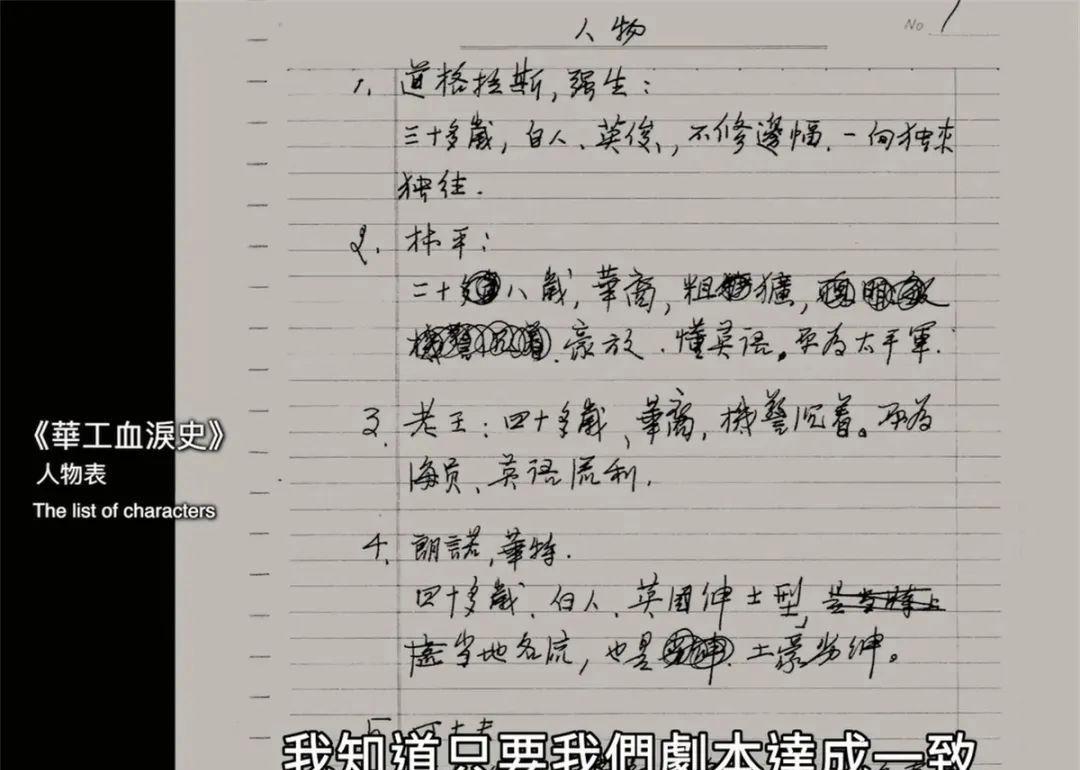 人物
No 1
1. 道格拉斯,强生:
三十多歲,白人、英俊、不修邊幅.一向独來
独往.
2. 林平:
二十八歲,華裔,粗獷,
豪放.懂英语。原为太平軍.
3. 老王:四十多歲、華裔,機警沉着。原为
海员、英语流利.
4. 朗諾,華特.
四十多歲、白人、英國紳士型,
當地名流,也是土豪劣紳。
5.
《華工血淚史》
人物表
The list of characters
我知道只要我們劇本達成一致